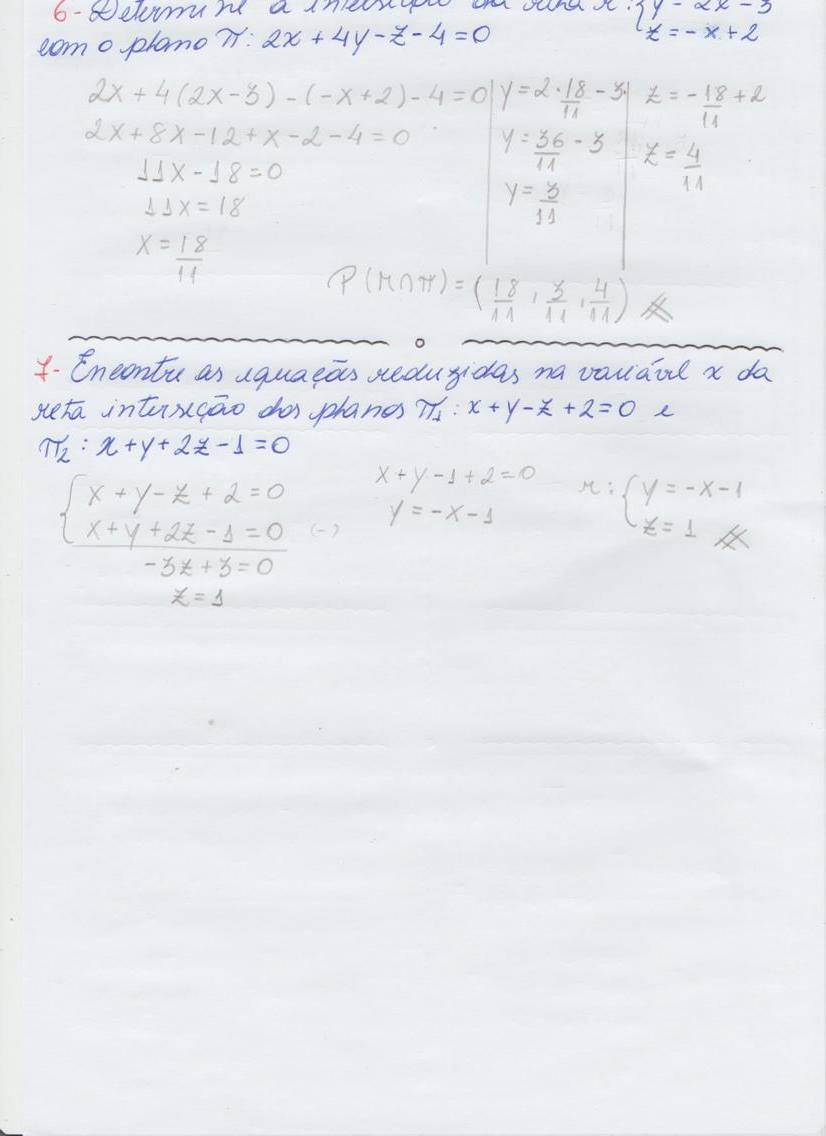 6- Determine a interseção da reta r: {y = 2x - 3
com o plano π: 2x + 4y - z - 4 = 0 {z = -x + 2
2x + 4(2x - 3) - (-x + 2) - 4 = 0
2x + 8x - 12 + x - 2 - 4 = 0
11x - 18 = 0
11x = 18
x = 18/11
y = 2 · 18/11 - 3
y = 36/11 - 3
y = 3/11
z = -18/11 + 2
z = 4/11
P(r∩π) = (18/11, 3/11, 4/11)
7- Encontre as equações reduzidas na variável x da
reta interseção dos planos π1: x + y - z + 2 = 0 e
π2: x + y + 2z - 1 = 0
{x + y - z + 2 = 0
{x + y + 2z - 1 = 0 (-)
-3z + 3 = 0
z = 1
x + y - 1 + 2 = 0
y = -x - 1
r: {y = -x - 1
{z = 1